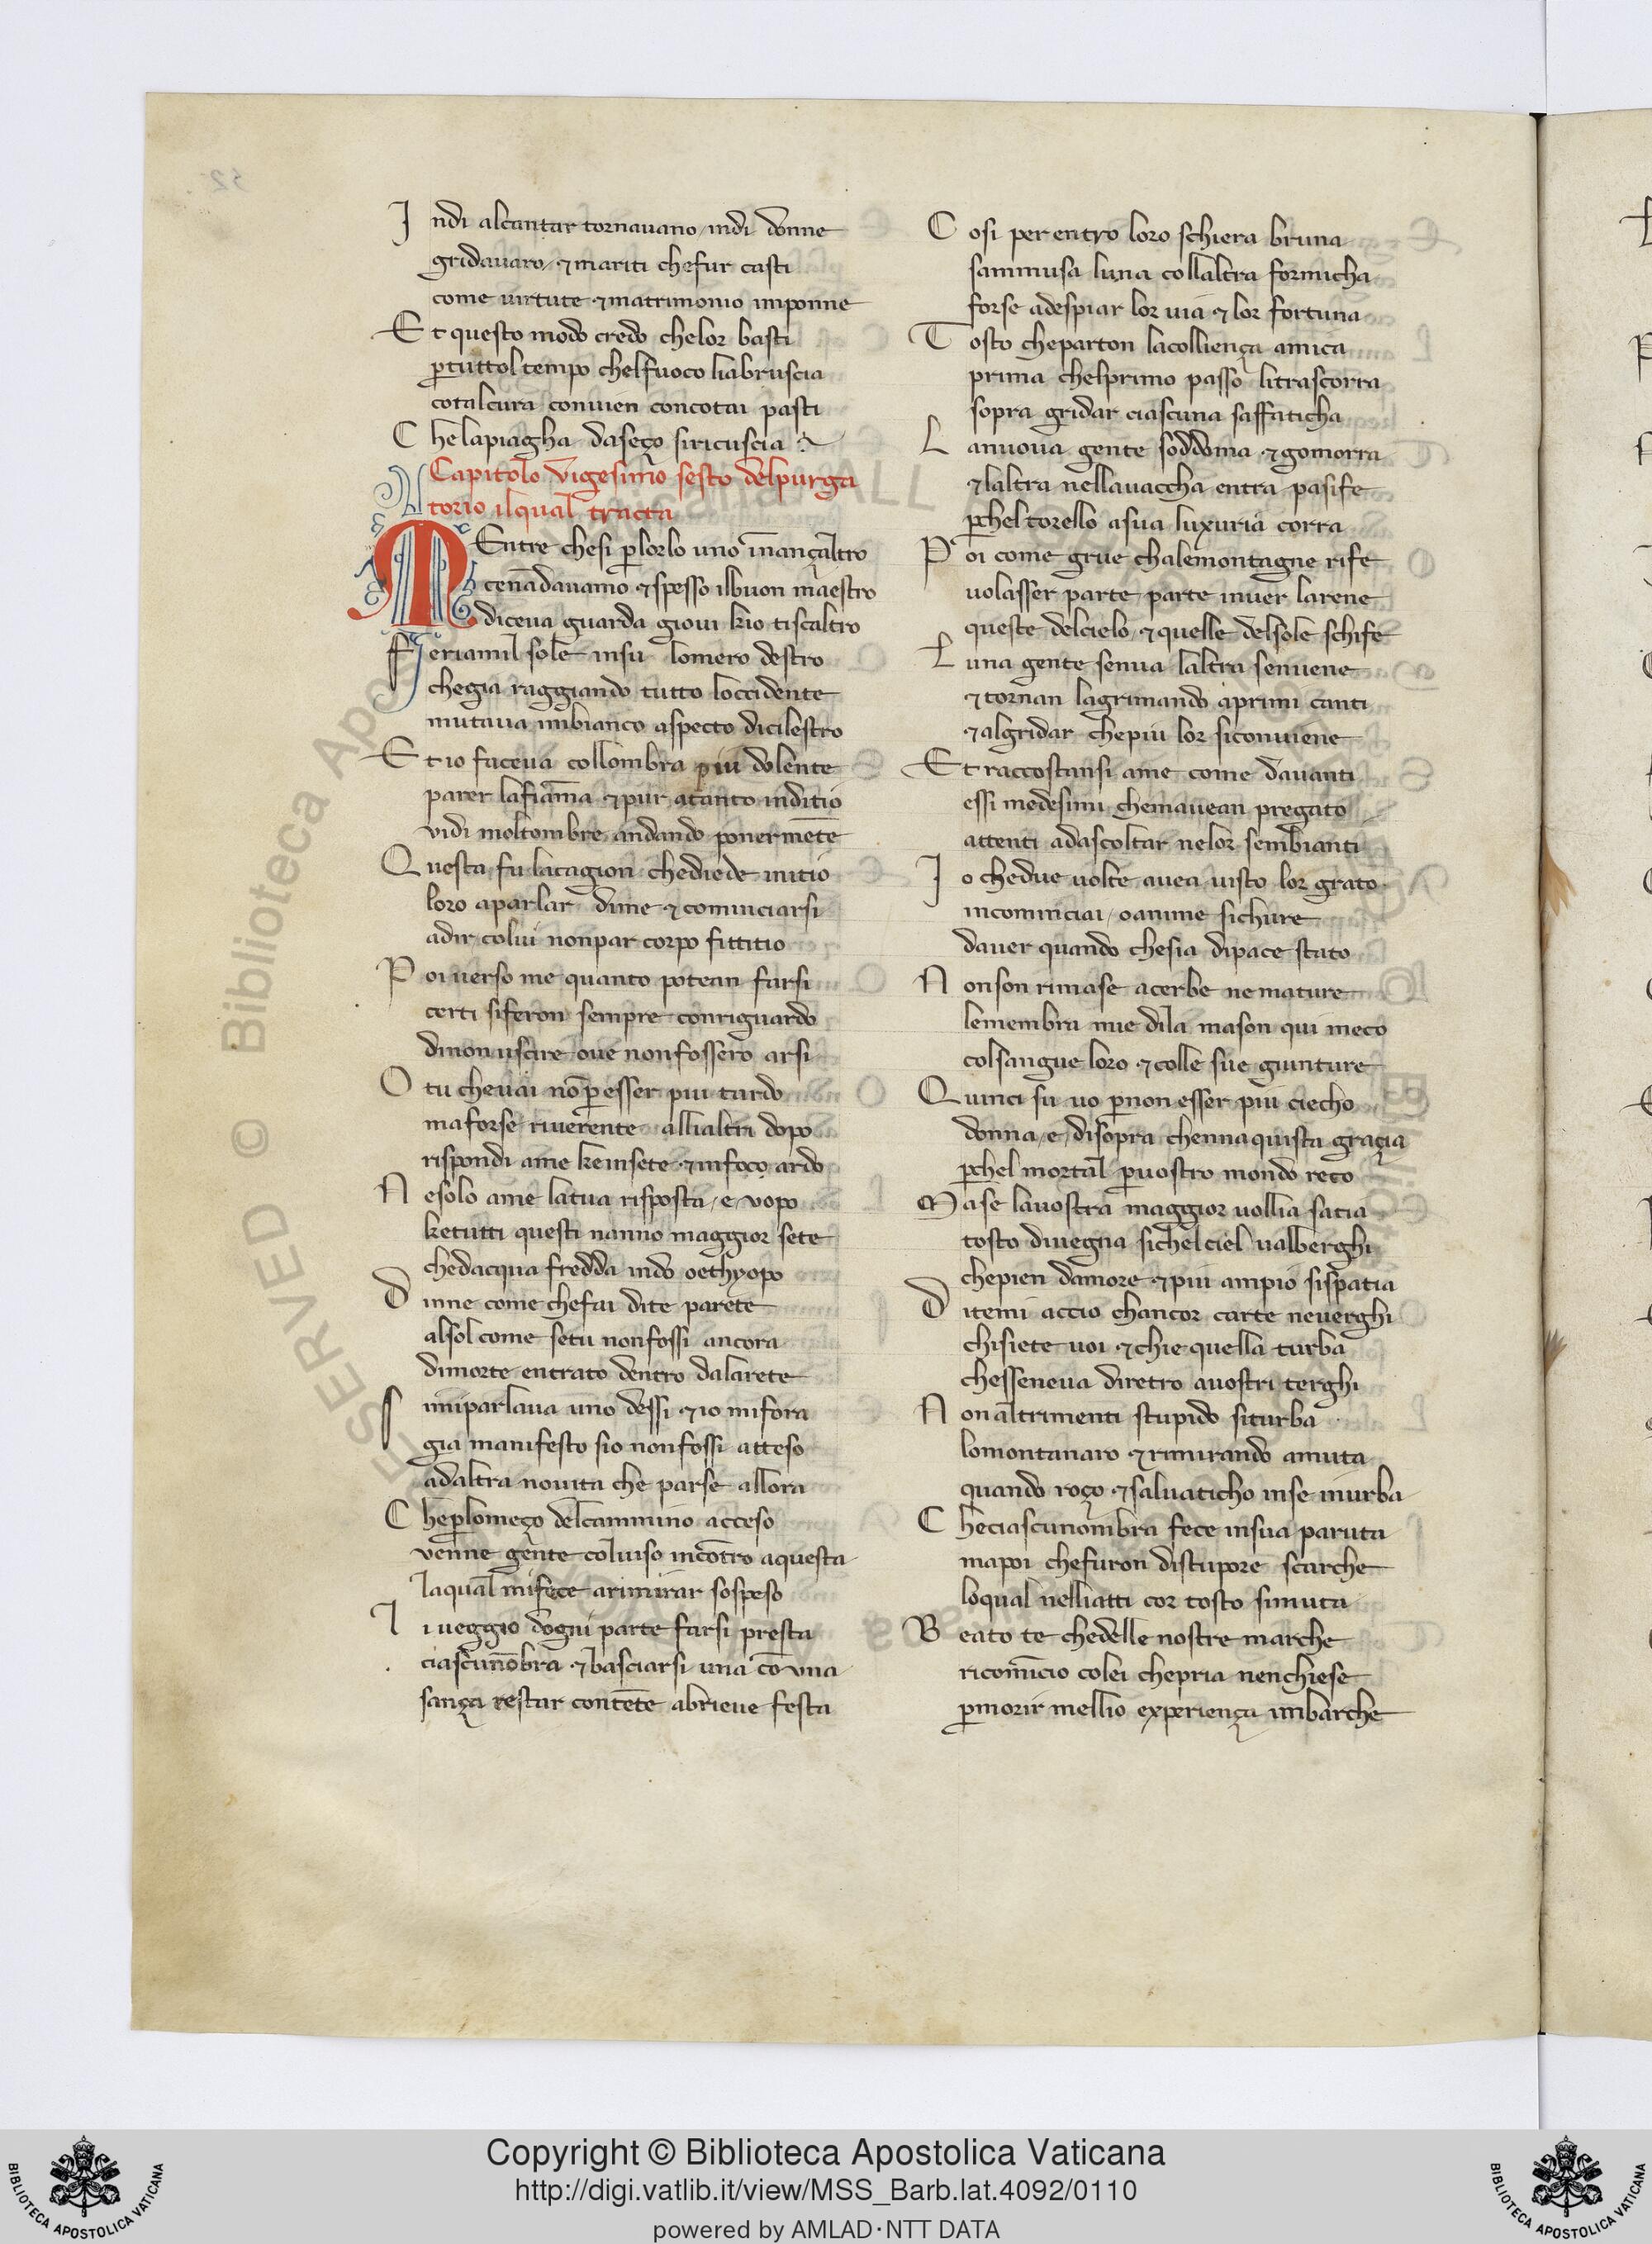 Indi alcantar tornauano / indi donne
gridauaro / ⁊ mariti chefur casti
come uirtute ⁊ matrimonio imponne
Et questo modo credo chelor basti
ꝑtuttol tempo chelfuoco liabruscia
cotalcura conuien concotai pasti
Chelapiagha daseço siricuscia
Capitolo vigesimo sesto delpurga
torio ilqual tracta
MEntre chesi ꝑlorlo uno inançaltro
cenãdauamo ⁊ spesso ilbuon maestro
diceua guarda gioui kio tiscaltro
Feriamil sole insu lomero destro
chegia raggiando tutto loccidente
mutaua imbianco aspecto dicilestro
Et io faceua collombra piu dolente
parer lafiãma ⁊ pur atanto inditio
vidi moltombre andando ponermẽte
Questa fu lacagion chediede initio
loro aparlar dime ⁊ cominciarsi
adir colui nonpar corpo fittitio
Poi uerso me quanto potean farsi
certi siferon sempre conriguardo
dinonuscire oue nonfossero arsi
O tu cheuai nõꝑesser piu tardo
maforse riuerente allialtri dopo
rispondi ame keinsete ⁊ infoco ardo
Nesolo ame latua risposta / e / vopo
ketutti questi nanno maggior sete
chedacqua fredda indo oethyopo
Dinne come chefai dite parete
alsol come setu nonfossi ancora
dimorte entrato dentro dalarete
Simiparlaua uno dessi ⁊ io mifora
gia manifesto sio nonfossi atteso
adaltra nouita che parse allora
Cheꝑlomeço delcammino acceso
venne gente coluiso incõtro aquesta
laqual mifece arimirar sospeso
Iui ueggio dogni parte farsi presta
ciascunõbra ⁊ basciarsi una cõ vna
sança restar contẽte abrieue festa
Cosi per entro loro schiera bruna
sammusa luna collaltra formicha
forse adespiar lor uia ⁊ lor fortuna
Tosto cheparton lacolliença amica
prima chelprimo passo litrascorra
sopra gridar ciascuna saffaticha
Lanuoua gente soddoma ⁊ gomorra
⁊ laltra nellauaccha entra pasife
ꝑchel torello asua luxuria corra
Poi come grue chalemontagne rife
uolasser parte parte inuer larene
queste delcielo ⁊ quelle delsole schife
Luna gente senua laltra senuene
⁊ tornan lagrimando aprimi canti
⁊ algridar chepiu lor siconuiene
Et raccostansi ame come dauanti
essi medesimi chemauean pregato
attenti adascoltar nelor sembianti
Io chedue uolte auea uisto lor grato
incominciai / oanime sichure
dauer quando chesia dipace stato
Nonson rimase acerbe ne mature
lemembra mie dila mason qui meco
colsangue loro ⁊ colle sue giunture
Quinci su uo ꝑnon esser piu ciecho
donna / e / disopra chennaquista graçia
ꝑchel mortal ꝑuostro mondo reco
Mase lauostra maggior uollia satia
tosto diuegna sichelciel ualberghi
chepien damore ⁊ piu ampio sispatia
Ditemi accio chancor carte neuerghi
chisiete uoi ⁊ chie quella turba
chesseneua diretro auostri terghi
Nonaltrimenti stupido siturba
lomontanaro ⁊ rimirando amuta
quando roço ⁊ saluaticho inse inurba
Checiascunombra fece insua paruta
mapoi chefuron distupore scarche
loqual nelliatti cor tosto simuta
Beato te chedelle nostre marche
ricomĩcio colei chepria nenchiese
ꝑmorir mellio experiença imbarche
Copyright © Biblioteca Apostolica Vaticana
http://digi.vatlib.it/view/MSS_Barb.lat.4092/0110
powered by AMLAD·NTT DATA
BIBLIOTECA APOSTOLICA VATICANA
BIBLIOTECA APOSTOLICA VATICANA